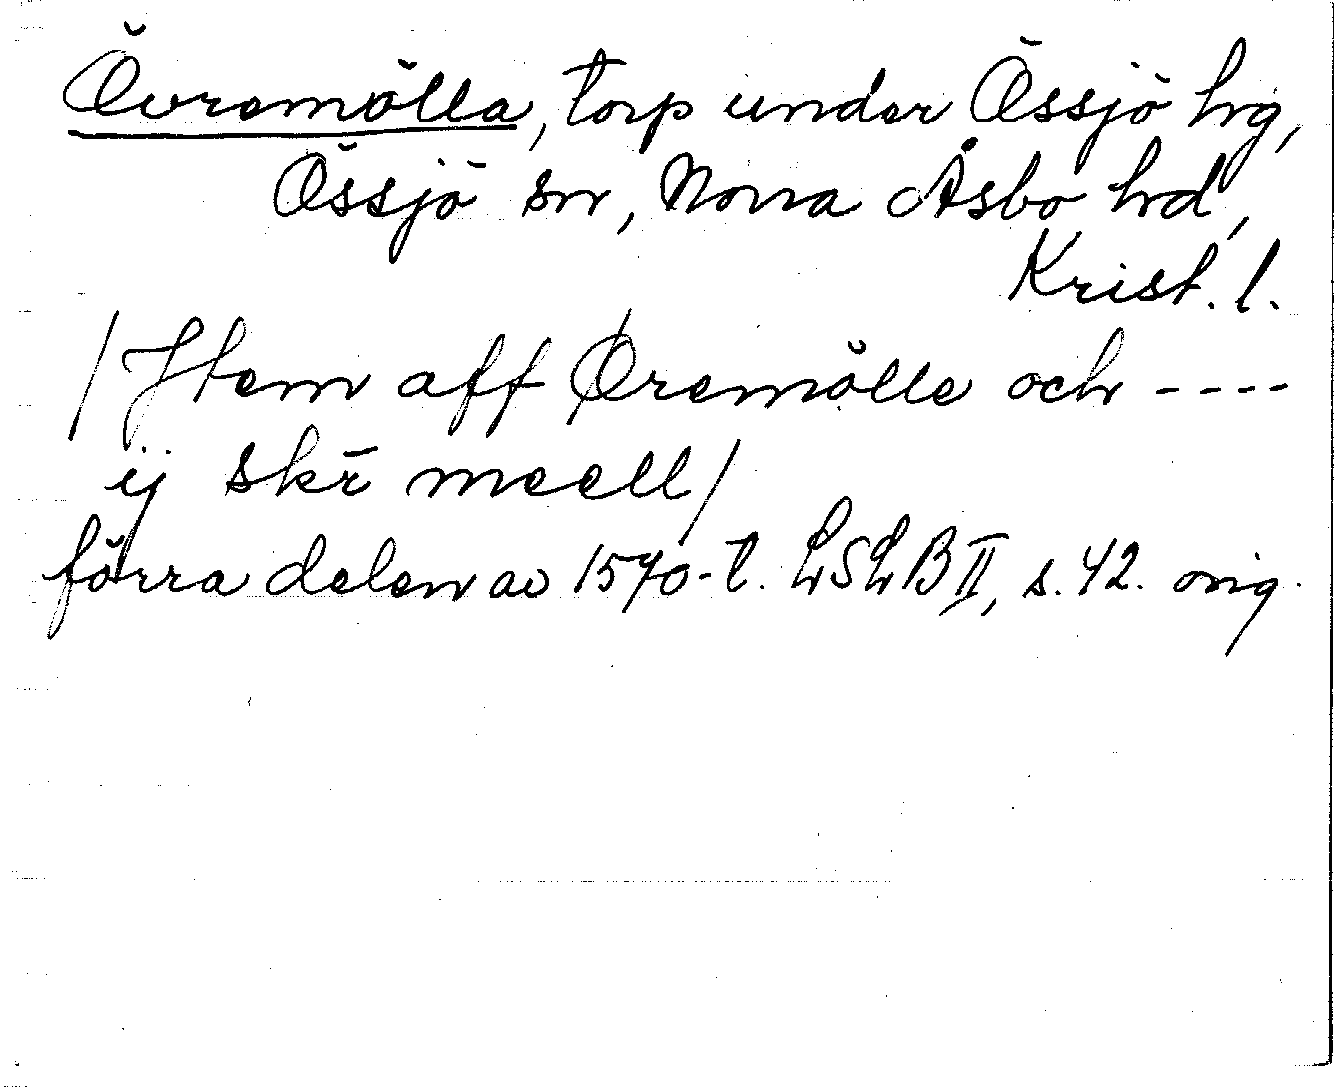 Övremölla, torp under Össjö hrg,
Össjö sn, Norra Åsbo hrd,
Krist. l.
/Jtem aff Øremölle och ----
ij skr̄ meell/
förra delen av 1570-t. LSLB II, s. 42. orig.